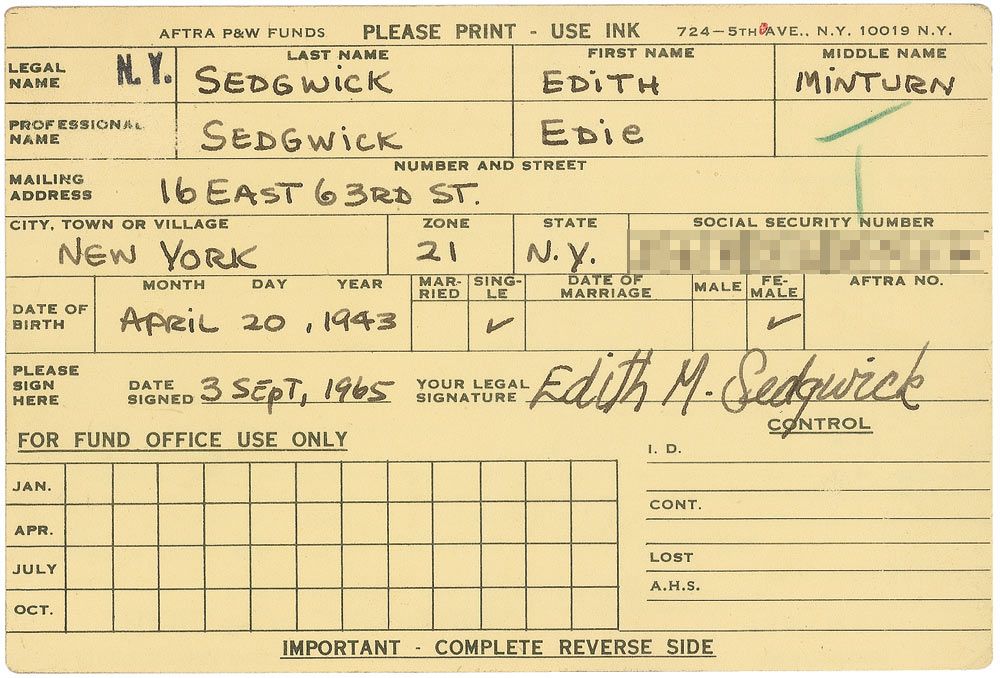 AFTRA P&W FUNDS PLEASE PRINT - USE INK 724-5TH AVE., N.Y. 10019 N.Y.
LEGAL NAME N.Y. LAST NAME SEDGWICK FIRST NAME EDITH MIDDLE NAME MINTURN
PROFESSIONAL NAME SEDGWICK EDIE
MAILING ADDRESS NUMBER AND STREET 16 EAST 63RD ST.
CITY, TOWN OR VILLAGE ZONE STATE SOCIAL SECURITY NUMBER
NEW YORK 21 N.Y.
MONTH DAY YEAR MAR-RIED SING-LE DATE OF MARRIAGE MALE FE-MALE AFTRA NO.
DATE OF BIRTH APRIL 20, 1943 ✓ ✓
PLEASE SIGN HERE DATE SIGNED 3 SEPT, 1965 YOUR LEGAL SIGNATURE Edith M. Sedgwick
CONTROL
FOR FUND OFFICE USE ONLY
I. D.
JAN.
CONT.
APR.
LOST
JULY
A.H.S.
OCT.
IMPORTANT - COMPLETE REVERSE SIDE